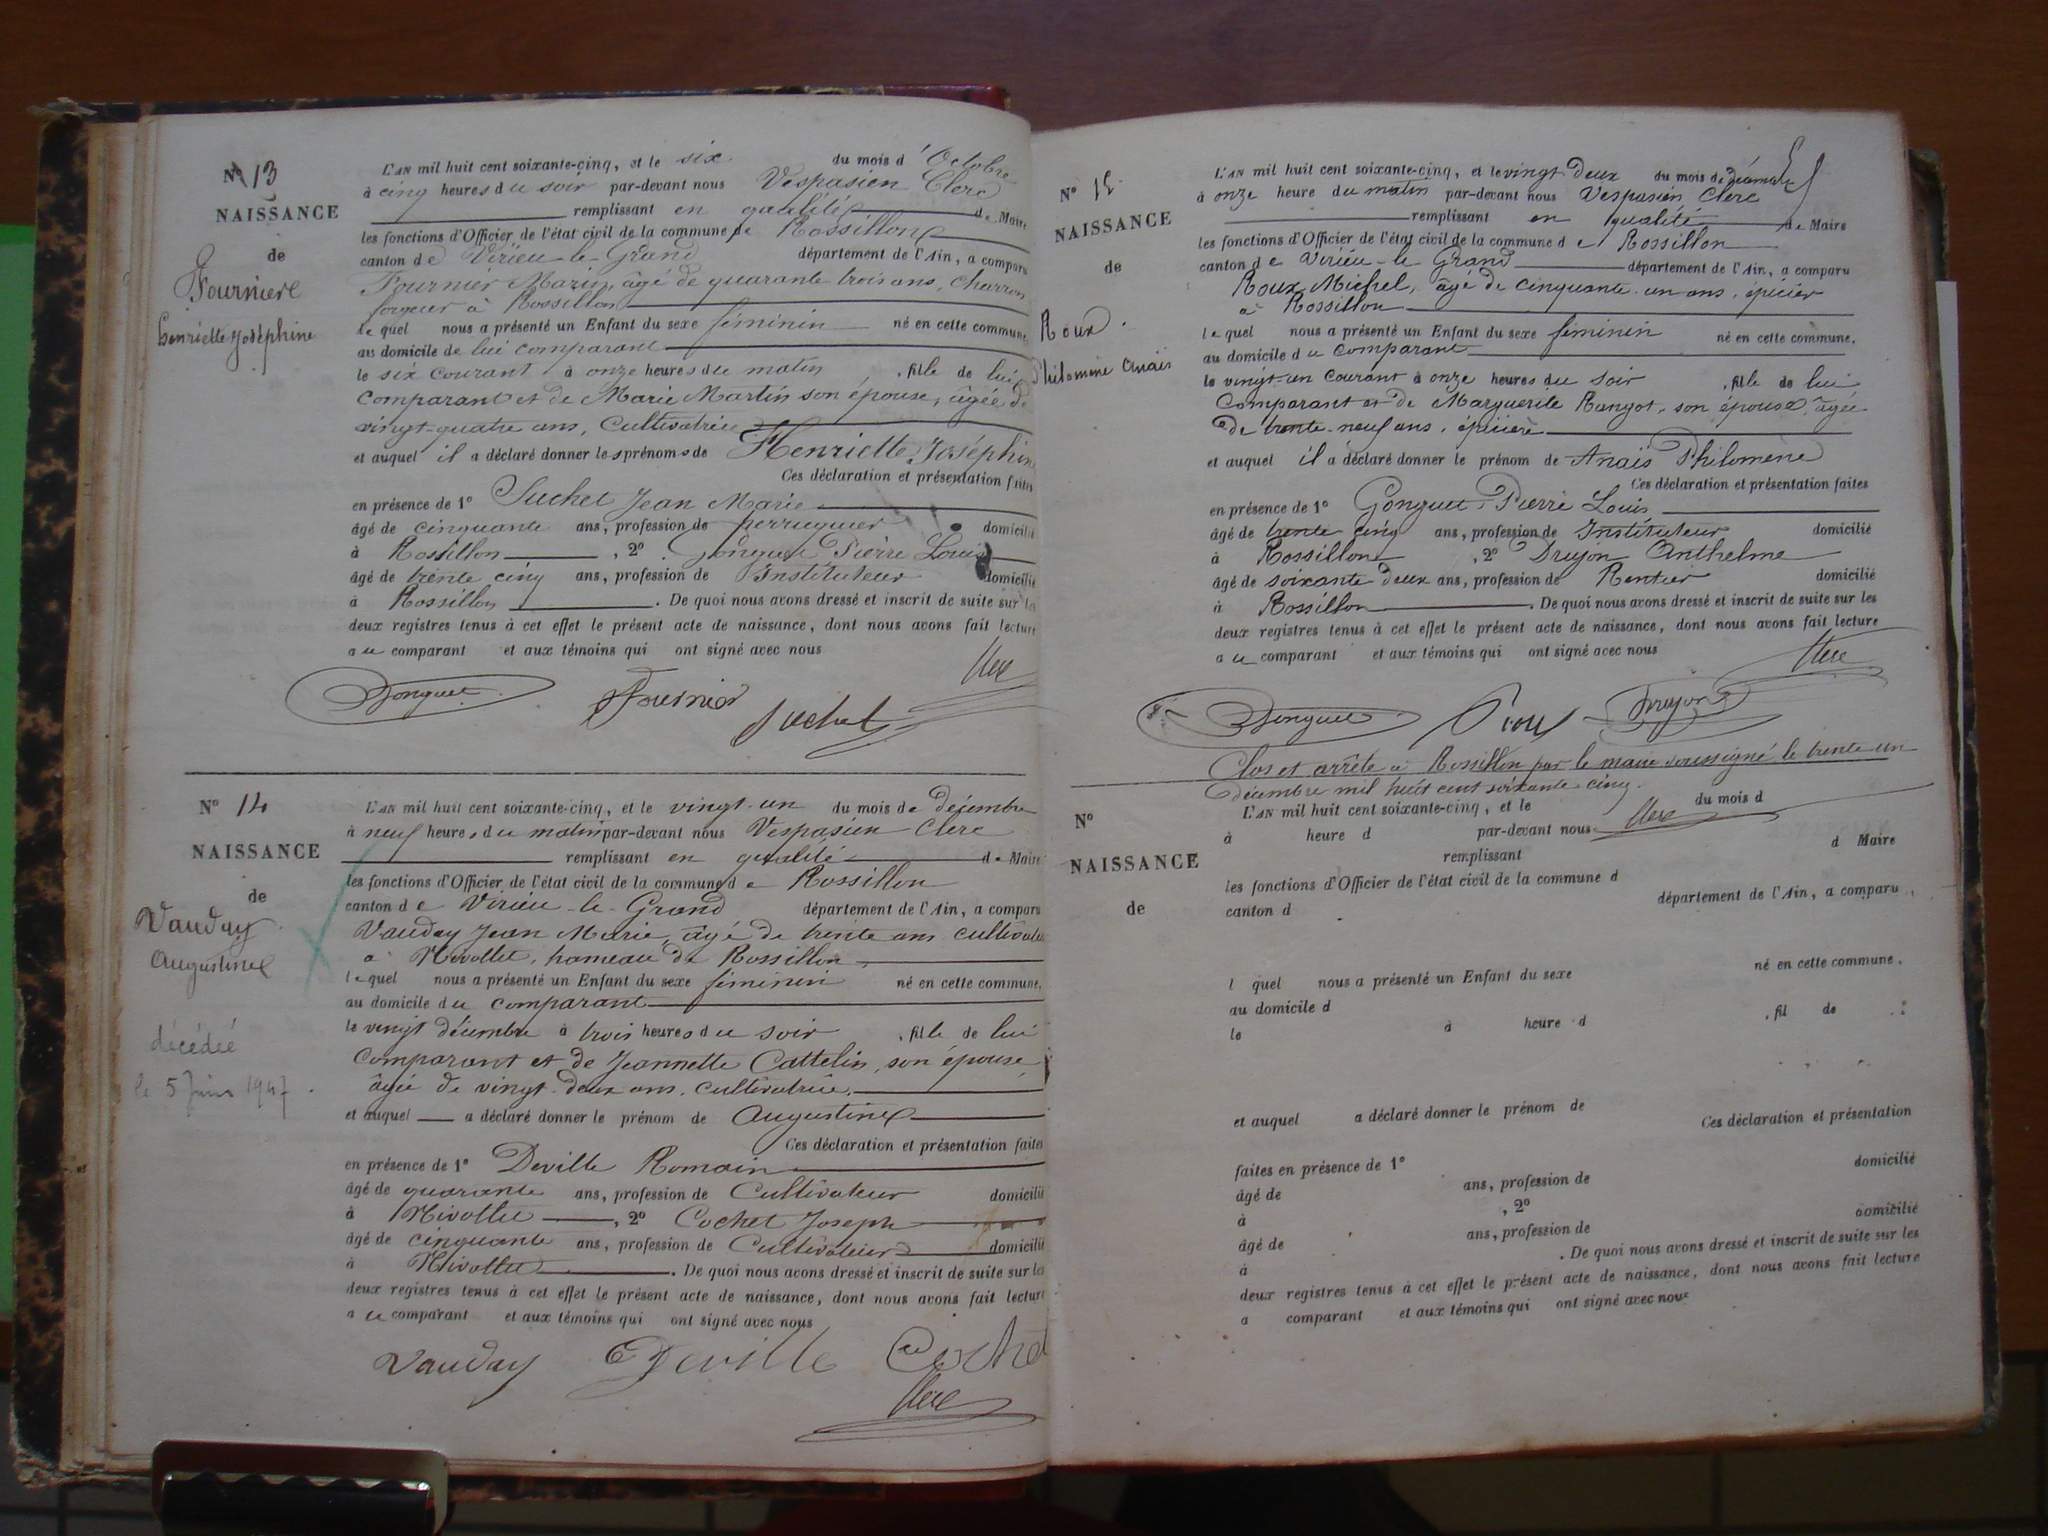 Nº 13
NAISSANCE
de
Fournier
Henriette Joséphine
L'AN mil huit cent soixante-cinq, et le six du mois d'Octobre
à cinq heures du soir par-devant nous Vespasien Clerc
remplissant en qualité de Maire
les fonctions d'Officier de l'état civil de la commune de Rossillon
canton de Virieu-le-Grand département de l'Ain, a comparu
Fournier Marin, âgé de quarante trois ans, charron
forgeur à Rossillon
lequel nous a présenté un Enfant du sexe féminin né en cette commune,
au domicile de lui comparant
le six courant à onze heures du matin, fille de lui
comparant et de Marie Martin son épouse, âgée de
vingt-quatre ans, Cultivatrice
et auquel il a déclaré donner les prénoms de Henriette Joséphine
Ces déclaration et présentation faites
en présence de 1º Suchet Jean Marie
âgé de cinquante ans, profession de perruquier domicilié
à Rossillon, 2º Gonguet Pierre Louis
âgé de trente cinq ans, profession de Instituteur domicilié
à Rossillon. De quoi nous avons dressé et inscrit de suite sur les
deux registres tenus à cet effet le présent acte de naissance, dont nous avons fait lecture
au comparant et aux témoins qui ont signé avec nous
Clerc
Gonguet Fournier Suchet
Nº 14
NAISSANCE
de
Vauday
Augustine
décédée
le 5 Juin 1947.
L'AN mil huit cent soixante-cinq, et le vingt-un du mois de décembre
à neuf heures du matin par-devant nous Vespasien Clerc
remplissant en qualité de Maire
les fonctions d'Officier de l'état civil de la commune de Rossillon
canton de Virieu-le-Grand département de l'Ain, a comparu
Vauday Jean Marie, âgé de trente ans cultivateur
à Nivollet, hameau de Rossillon,
lequel nous a présenté un Enfant du sexe féminin né en cette commune,
au domicile du comparant
le vingt décembre à trois heures du soir, fille de lui
comparant et de Jeannette Cattelin, son épouse
âgée de vingt-deux ans, cultivatrice.
et auquel a déclaré donner le prénom de Augustine
Ces déclaration et présentation faites
en présence de 1º Deville Romain
âgé de quarante ans, profession de Cultivateur domicilié
à Nivollet, 2º Cochet Joseph
âgé de cinquante ans, profession de Cultivateur domicilié
à Nivollet. De quoi nous avons dressé et inscrit de suite sur les
deux registres tenus à cet effet le présent acte de naissance, dont nous avons fait lecture
au comparant et aux témoins qui ont signé avec nous
Vauday Deville Cochet
Clerc
Nº 15
NAISSANCE
de
Roux
Philomène Anaïs
L'AN mil huit cent soixante-cinq, et le vingt-deux du mois de décembre
à onze heure du matin par-devant nous Vespasien Clerc
remplissant en qualité de Maire
les fonctions d'Officier de l'état civil de la commune de Rossillon
canton de Virieu-le-Grand département de l'Ain, a comparu
Roux Michel, âgé de cinquante-un ans, épicier
à Rossillon
lequel nous a présenté un Enfant du sexe féminin né en cette commune,
au domicile du comparant
le vingt-un courant à onze heures du soir, fille de lui
comparant et de Marguerite Rangot, son épouse, âgée
de trente-neuf ans, épicière
et auquel il a déclaré donner le prénom de Anaïs Philomène
Ces déclaration et présentation faites
en présence de 1º Gonguet, Pierre Louis
âgé de trente cinq ans, profession de Instituteur domicilié
à Rossillon, 2º Drujon Anthelme
âgé de soixante deux ans, profession de Rentier domicilié
à Rossillon. De quoi nous avons dressé et inscrit de suite sur les
deux registres tenus à cet effet le présent acte de naissance, dont nous avons fait lecture
au comparant et aux témoins qui ont signé avec nous
Clerc
Gonguet Roux Drujon
Clos et arrêté à Rossillon par le maire soussigné le trente un
décembre mil huit cent soixante cinq.
Clerc
Nº
NAISSANCE
de
L'AN mil huit cent soixante-cinq, et le du mois d
à heure d par-devant nous
remplissant d Maire
les fonctions d'Officier de l'état civil de la commune d
canton d département de l'Ain, a comparu
l quel nous a présenté un Enfant du sexe né en cette commune,
au domicile d
le à heure d , fil de
et auquel a déclaré donner le prénom de
Ces déclaration et présentation
faites en présence de 1º
âgé de ans, profession de domicilié
à , 2º
âgé de ans, profession de domicilié
à . De quoi nous avons dressé et inscrit de suite sur les
deux registres tenus à cet effet le présent acte de naissance, dont nous avons fait lecture
a comparant et aux témoins qui ont signé avec nous